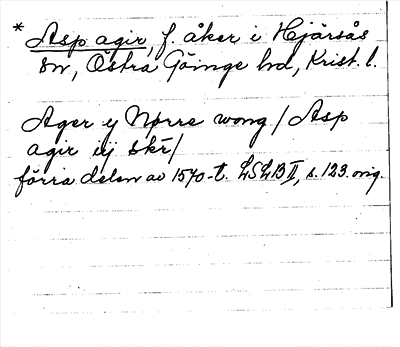 * Asp agir, f. åker i Hjärsås
sn, Östra Göinge hd, Krist. l.
Ager y Nørre wong / Asp
agir iij skr/
förra delen av 1570-t. LSLB II, s. 123. orig.